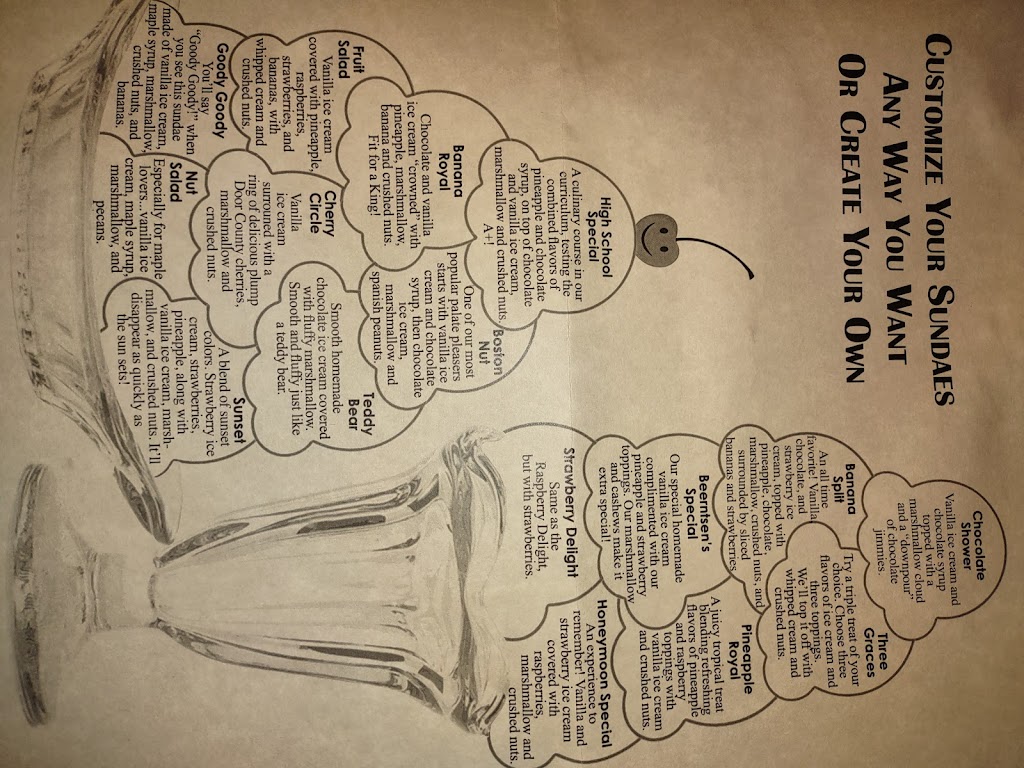 CUSTOMIZE YOUR SUNDAES
ANY WAY YOU WANT
OR CREATE YOUR OWN
High School
Special
A culinary course in our
curriculum, testing the
combined flavors of
pineapple and chocolate
syrup, on top of chocolate
and vanilla ice cream,
marshmallow and crushed nuts.
A+!
Banana
Royal
Chocolate and vanilla
ice cream "crowned" with
pineapple, marshmallow,
banana and crushed nuts.
Fit for a King!
Boston
Nut
One of our most
popular palate pleasers
starts with vanilla ice
cream and chocolate
syrup, then chocolate
ice cream,
marshmallow and
spanish peanuts.
Fruit
Salad
Vanilla ice cream
covered with pineapple,
raspberries,
strawberries, and
bananas, with
whipped cream and
crushed nuts.
Cherry
Circle
Vanilla
ice cream
surrouned with a
ring of delicious plump
Door County cherries,
marshmallow and
crushed nuts.
Teddy
Bear
Smooth homemade
chocolate ice cream covered
with fluffy marshmallow.
Smooth and fluffy just like
a teddy bear.
Goody Goody
You'll say
"Goody Goody!" when
you see this sundae
made of vanilla ice cream,
maple syrup, marshmallow,
crushed nuts, and
bananas.
Nut
Salad
Especially for maple
lovers...vanilla ice
cream, maple syrup,
marshmallow, and
pecans.
Sunset
A blend of sunset
colors. Strawberry ice
cream, strawberries,
pineapple, along with
vanilla ice cream, marsh-
mallow, and crushed nuts. It'll
disappear as quickly as
the sun sets!
Chocolate
Shower
Vanilla ice cream and
chocolate syrup
topped with a
marshmallow cloud
and a "downpour"
of chocolate
jimmies.
Banana
Split
An all time
favorite! Vanilla,
chocolate, and
strawberry ice
cream, topped with
pineapple, chocolate,
marshmallow, crushed nuts, and
surrounded by sliced
bananas and strawberries.
Three
Graces
Try a triple treat of your
choice. Choose three
flavors of ice cream and
three toppings.
We'll top it off with
whipped cream and
crushed nuts.
Beerntsen's
Special
Our special homemade
vanilla ice cream
complimented with our
pineapple and strawberry
toppings. Our marshmallow
and cashews make it
extra special!
Pineapple
Royal
A juicy tropical treat
blending refreshing
flavors of pineapple
and raspberry
toppings with
vanilla ice cream
and crushed nuts.
Strawberry Delight
Same as the
Raspberry Delight,
but with strawberries.
Honeymoon Special
An experience to
remember! Vanilla and
strawberry ice cream
covered with
raspberries,
marshmallow and
crushed nuts.